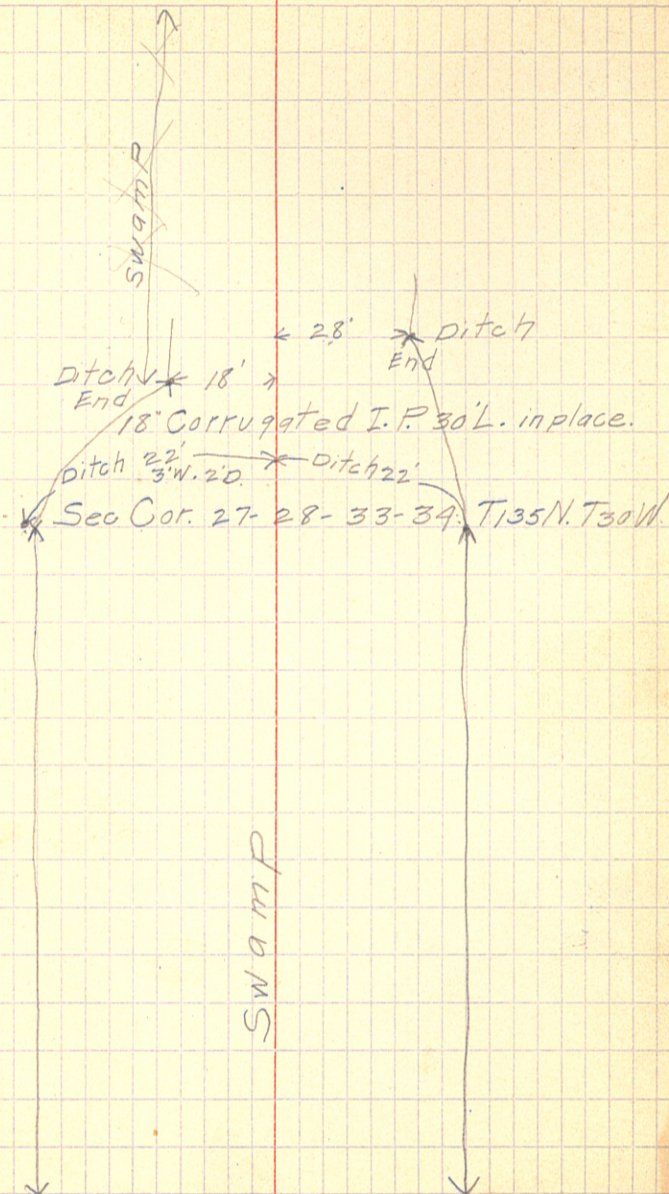 Swamp
28'
Ditch
End
Ditch
End
18'
18" Corrugated I.P. 30'L. in place.
Ditch 22' Ditch 22'
3'W. 2'D.
Sec Cor. 27- 28- 33- 34. T135N. T30W.
Swamp